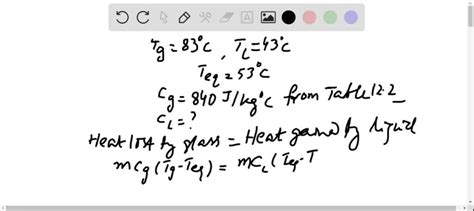 Tg = 83°C, TL = 43°C
Teq = 53°C
Cg = 840 J/kg°C from Table 12.2
CL = ?
Heat lost by glass = Heat gained by liquid
mCg (Tg-Teq) = mCL (Teq-T